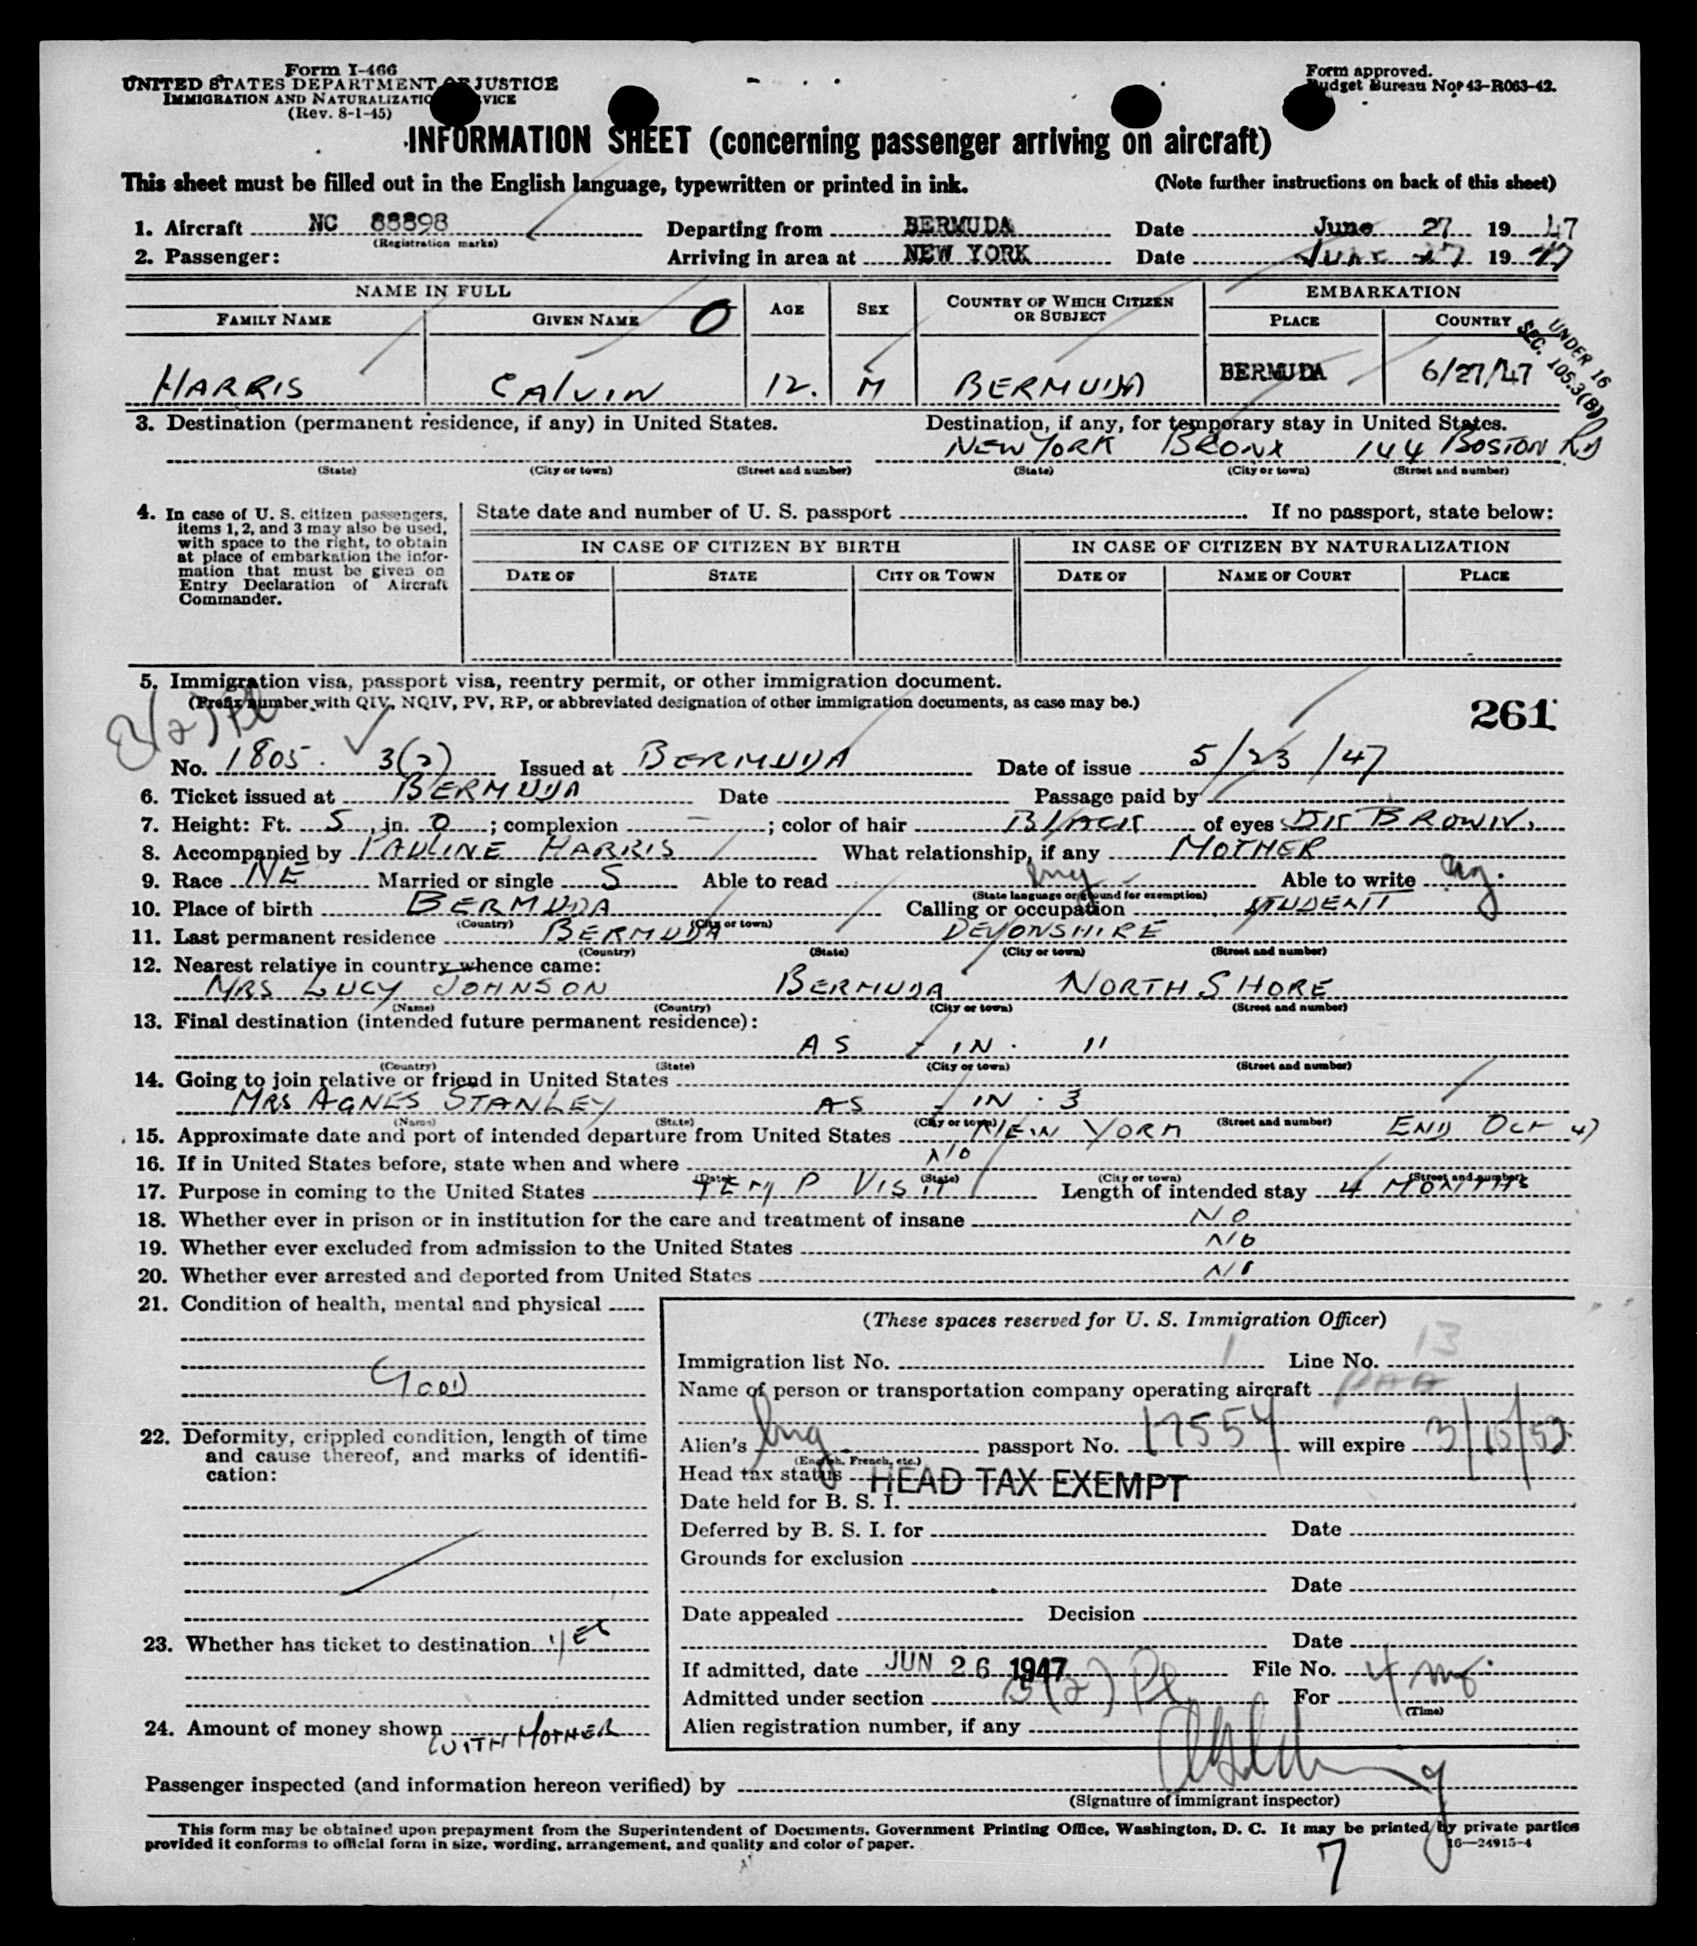 Form I-466
UNITED STATES DEPARTMENT OF JUSTICE
IMMIGRATION AND NATURALIZATION SERVICE
(Rev. 8-1-45)
Form approved.
Budget Bureau No. 43-R063-42.
INFORMATION SHEET (concerning passenger arriving on aircraft)
This sheet must be filled out in the English language, typewritten or printed in ink. (Note further instructions on back of this sheet)
1. Aircraft NC 88898 Departing from BERMUDA Date June 27 1947
(Registration marks)
2. Passenger: Arriving in area at NEW YORK Date JUNE 27 1947
NAME IN FULL AGE SEX COUNTRY OF WHICH CITIZEN OR SUBJECT EMBARKATION
FAMILY NAME GIVEN NAME O PLACE COUNTRY
UNDER 16
SEC. 105.3(B)
HARRIS CALVIN 12. M BERMUDA BERMUDA 6/27/47
3. Destination (permanent residence, if any) in United States. Destination, if any, for temporary stay in United States.
NEW YORK BRONX 144 BOSTON RD
(State) (City or town) (Street and number) (State) (City or town) (Street and number)
4. In case of U. S. citizen passengers, items 1, 2, and 3 may also be used, with space to the right, to obtain at place of embarkation the information that must be given on Entry Declaration of Aircraft Commander.
State date and number of U. S. passport If no passport, state below:
IN CASE OF CITIZEN BY BIRTH IN CASE OF CITIZEN BY NATURALIZATION
DATE OF STATE CITY OR TOWN DATE OF NAME OF COURT PLACE
5. Immigration visa, passport visa, reentry permit, or other immigration document.
(Prefix number with QIV, NQIV, PV, RP, or abbreviated designation of other immigration documents, as case may be.)
261
No. 1805 3(2) Issued at BERMUDA Date of issue 5/23/47
6. Ticket issued at BERMUDA Date Passage paid by
7. Height: Ft. 5, in. 0; complexion –; color of hair BLACK of eyes DK BROWN.
8. Accompanied by PAULINE HARRIS What relationship, if any MOTHER
9. Race NE Married or single S Able to read Eng Able to write Eng.
(State language or ground for exemption)
10. Place of birth BERMUDA Calling or occupation STUDENT
(Country) (City or town)
11. Last permanent residence BERMUDA DEVONSHIRE
(Country) (State) (City or town) (Street and number)
12. Nearest relative in country whence came:
MRS LUCY JOHNSON BERMUDA NORTH SHORE
(Name) (Country) (City or town) (Street and number)
13. Final destination (intended future permanent residence):
AS - IN. 11
(Country) (State) (City or town) (Street and number)
14. Going to join relative or friend in United States
MRS AGNES STANLEY AS - IN. 3
(Name) (State) (City or town) (Street and number)
15. Approximate date and port of intended departure from United States NEW YORK END OCT 47
16. If in United States before, state when and where NO
(Date) (State) (City or town) (Street and number)
17. Purpose in coming to the United States TEMP VISIT Length of intended stay 4 MONTHS
18. Whether ever in prison or in institution for the care and treatment of insane NO
19. Whether ever excluded from admission to the United States NO
20. Whether ever arrested and deported from United States NO
21. Condition of health, mental and physical
GOOD
22. Deformity, crippled condition, length of time and cause thereof, and marks of identification:
23. Whether has ticket to destination YES
24. Amount of money shown WITH MOTHER
(These spaces reserved for U. S. Immigration Officer)
Immigration list No. 1 Line No. 13
Name of person or transportation company operating aircraft PAA
Alien's Eng passport No. 17554 will expire 3/15/52
(English, French, etc.)
Head tax status HEAD TAX EXEMPT
Date held for B. S. I.
Deferred by B. S. I. for Date
Grounds for exclusion
Date
Date appealed Decision
Date
If admitted, date JUN 26 1947 File No.
Admitted under section 3(2) For 4 mos.
(Time)
Alien registration number, if any
Passenger inspected (and information hereon verified) by
(Signature of immigrant inspector)
This form may be obtained upon prepayment from the Superintendent of Documents, Government Printing Office, Washington, D. C. It may be printed by private parties
provided it conforms to official form in size, wording, arrangement, and quality and color of paper. 16—24915-4
7